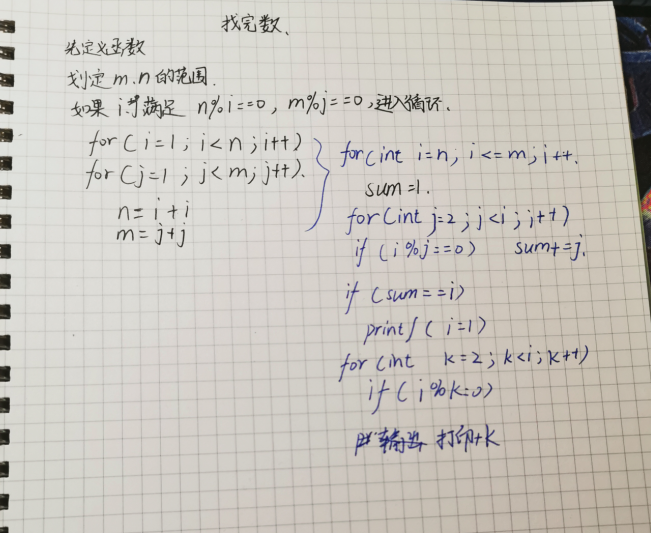 找完数、
先定义函数
划定m.n的范围.
如果 i 满足 n%i==0, m%j==0,进入循环.
for(i=1; i<n; i++)
for(j=1; j<m; j++).
n=i+i
m=j+j
for(int i=n; i<=m; i++.
sum=1.
for(int j=2; j<i; j++)
if (i%j==0) sum+=j.
if (sum==i)
printf( i=1)
for(int k=2; k<i; k++)
if(i%k=0)
打印+k